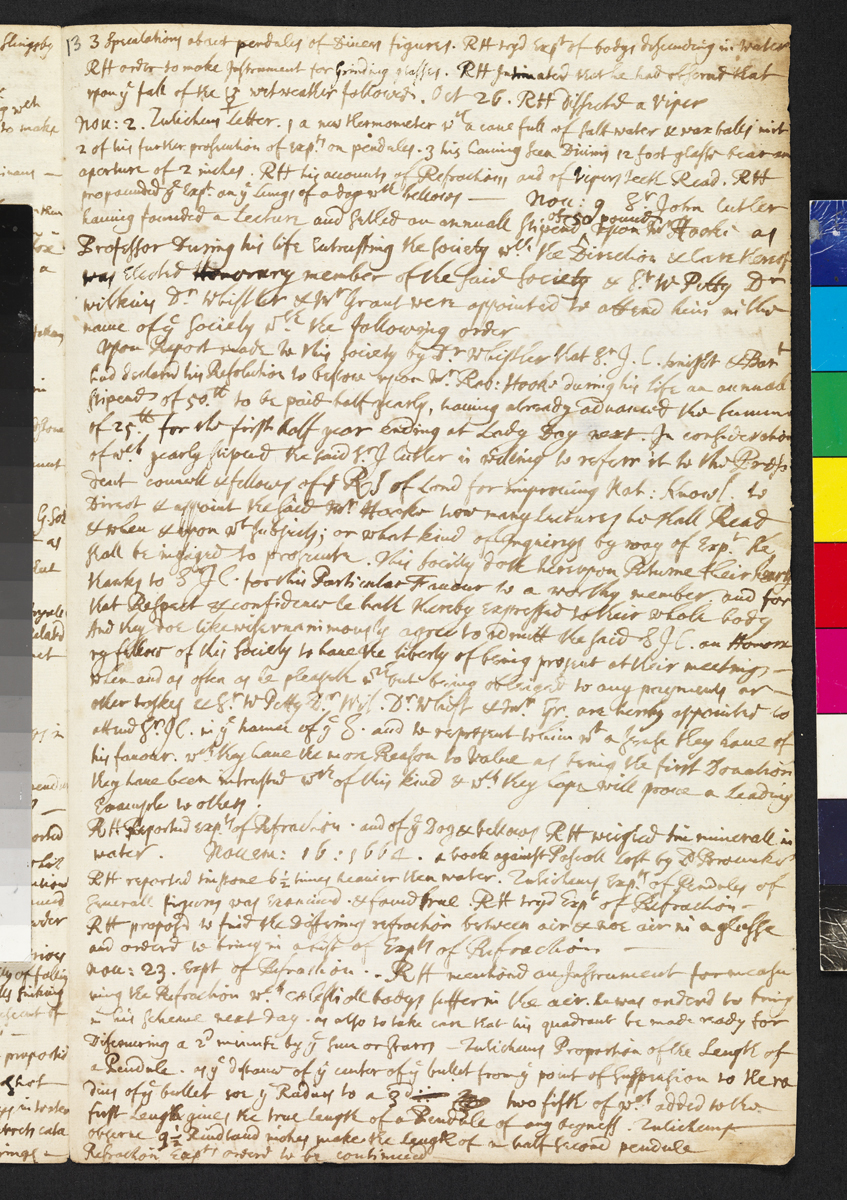 13 3 Speculations about pendules of Divers figures. RH tryd Expt of bodys descending in water
RH order to make Instrument for Grinding glasses. RH Intimated that he had observd that
upon ye fall of the ☿ wet weather followed. Oct 26. RH Dissectd a Viper
Nou: 2. Zulichems Letter. 1 a new thermometer wth a cane full of salt water & wax balls in it
2 of his further prosecution of Expts on pendules. 3 his having seen Divini 12 foot glasse bear an
aperture of 2 inches. RH his accounts of Refractions and of Vipers teeth Read. RH
propounded ye Expt on ye Lungs of a dog wth bellows — Nou: 9 Sr John Cutler
having founded a Lecture and setled an annuall stipend of 50 pounds upon Mr Hooke as
Professor During his life Entrusting the Society wth the Direction & Care thereof
was Elected Honorary member of the said Society & Sr W Petty Dr
wilkins Dr Whistler & Mr Graunt were appointed to attend him in the
name of ye Society wth the following order
Upon Report made to this Society by Dr Whistler that Sr J. C. knight & Bart
had declared his Resolution to bestow upon Mr Rob: Hooke during his life an annuall
stipend of 50.lb to be paid half yearly, having already advanced the summe
of 25.lb for the first half year ending at Lady Day next. In consideration
of wch yearly stipend the said Sr J Cutler is willing to referr it to the Presi
dent councill & fellows of ye RS of Lond for improving Nat: Knowl. to
Direct & appoint the said Mr Hooke how many Lectures he shall Read
& when & upon wt subjects; or what kind of Inquirys by way of Expt he
shall be ingaged to prosecute. This Society doth hereupon Returne their hearty
thanks to Sr J C. for this Particular Favour to a worthy member and for
that Respect & confidence he hath thereby Expressed to their whole body
And they doe likewise unanimously agree to admitt the said Sr J C. an Honora
ry fellow of this Society to have the liberty of being present at their meetings —
when and as often as he pleaseth wthout being obleiged to any payments or —
other taskes & Sr W Petty Dr Wil. Dr Whist & Mr Gr. are hereby appointed to
attend Sr J C. in ye name of ye S. and to represent to him wt a sense they have of
his favour. wch they have the more Reason to Value as being the first Donation
they have been intrusted wth of this kind & wch they hope will prove a Leading
Example to others.
RH Reported Expts of Refraction. and of ye Dog & bellows RH weighd tin minerall in
water. Nouem: 16: 1664. a book against Pascall lost by Ld Brounker
RH reported tin stone 6½ times heavier then water. Zulichems Expts of Pendules of
severall figures was Examined & found true. RH tryd Expt of Refraction —
RH proposd to find the Differing refraction between air & noe air in a glasse
and orderd to bring in a list of Expts of Refraction. —
Nou: 23. Expt of Refraction. RH mentiond an Instrument for measu
ring the Refraction wch celestiall bodys suffer in the air. he was orderd to bring
in his scheme next day. as also to take care that his quadrant be made ready for
Discouering a 2d minute by ye sun or starrs — Zulichems Proportion of the Length of
a Pendule. as ye distance of ye center of ye bullet from ye point of Suspension to the ra
dius of ye bullet soe ye Radius to a 3d two fifth of wch added to the
first Length gives the true length of a Pendule of any bigness. Zulichems
observe 9½ Rindland inches make the length of a half second pendule
Refraction Expts orderd to be continued